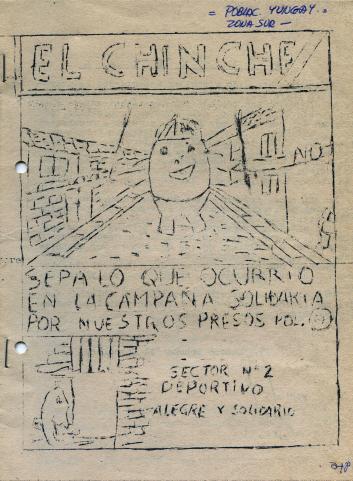 = POBLAC. YUNGAY. =
ZONA SUR -
EL CHINCHE
NO
SEPA LO QUE OCURRIO
EN LA CAMPAÑA SOLIDARIA
POR NUESTROS PRESOS POL.
SECTOR Nº 2
DEPORTIVO
ALEGRE Y SOLIDARIO